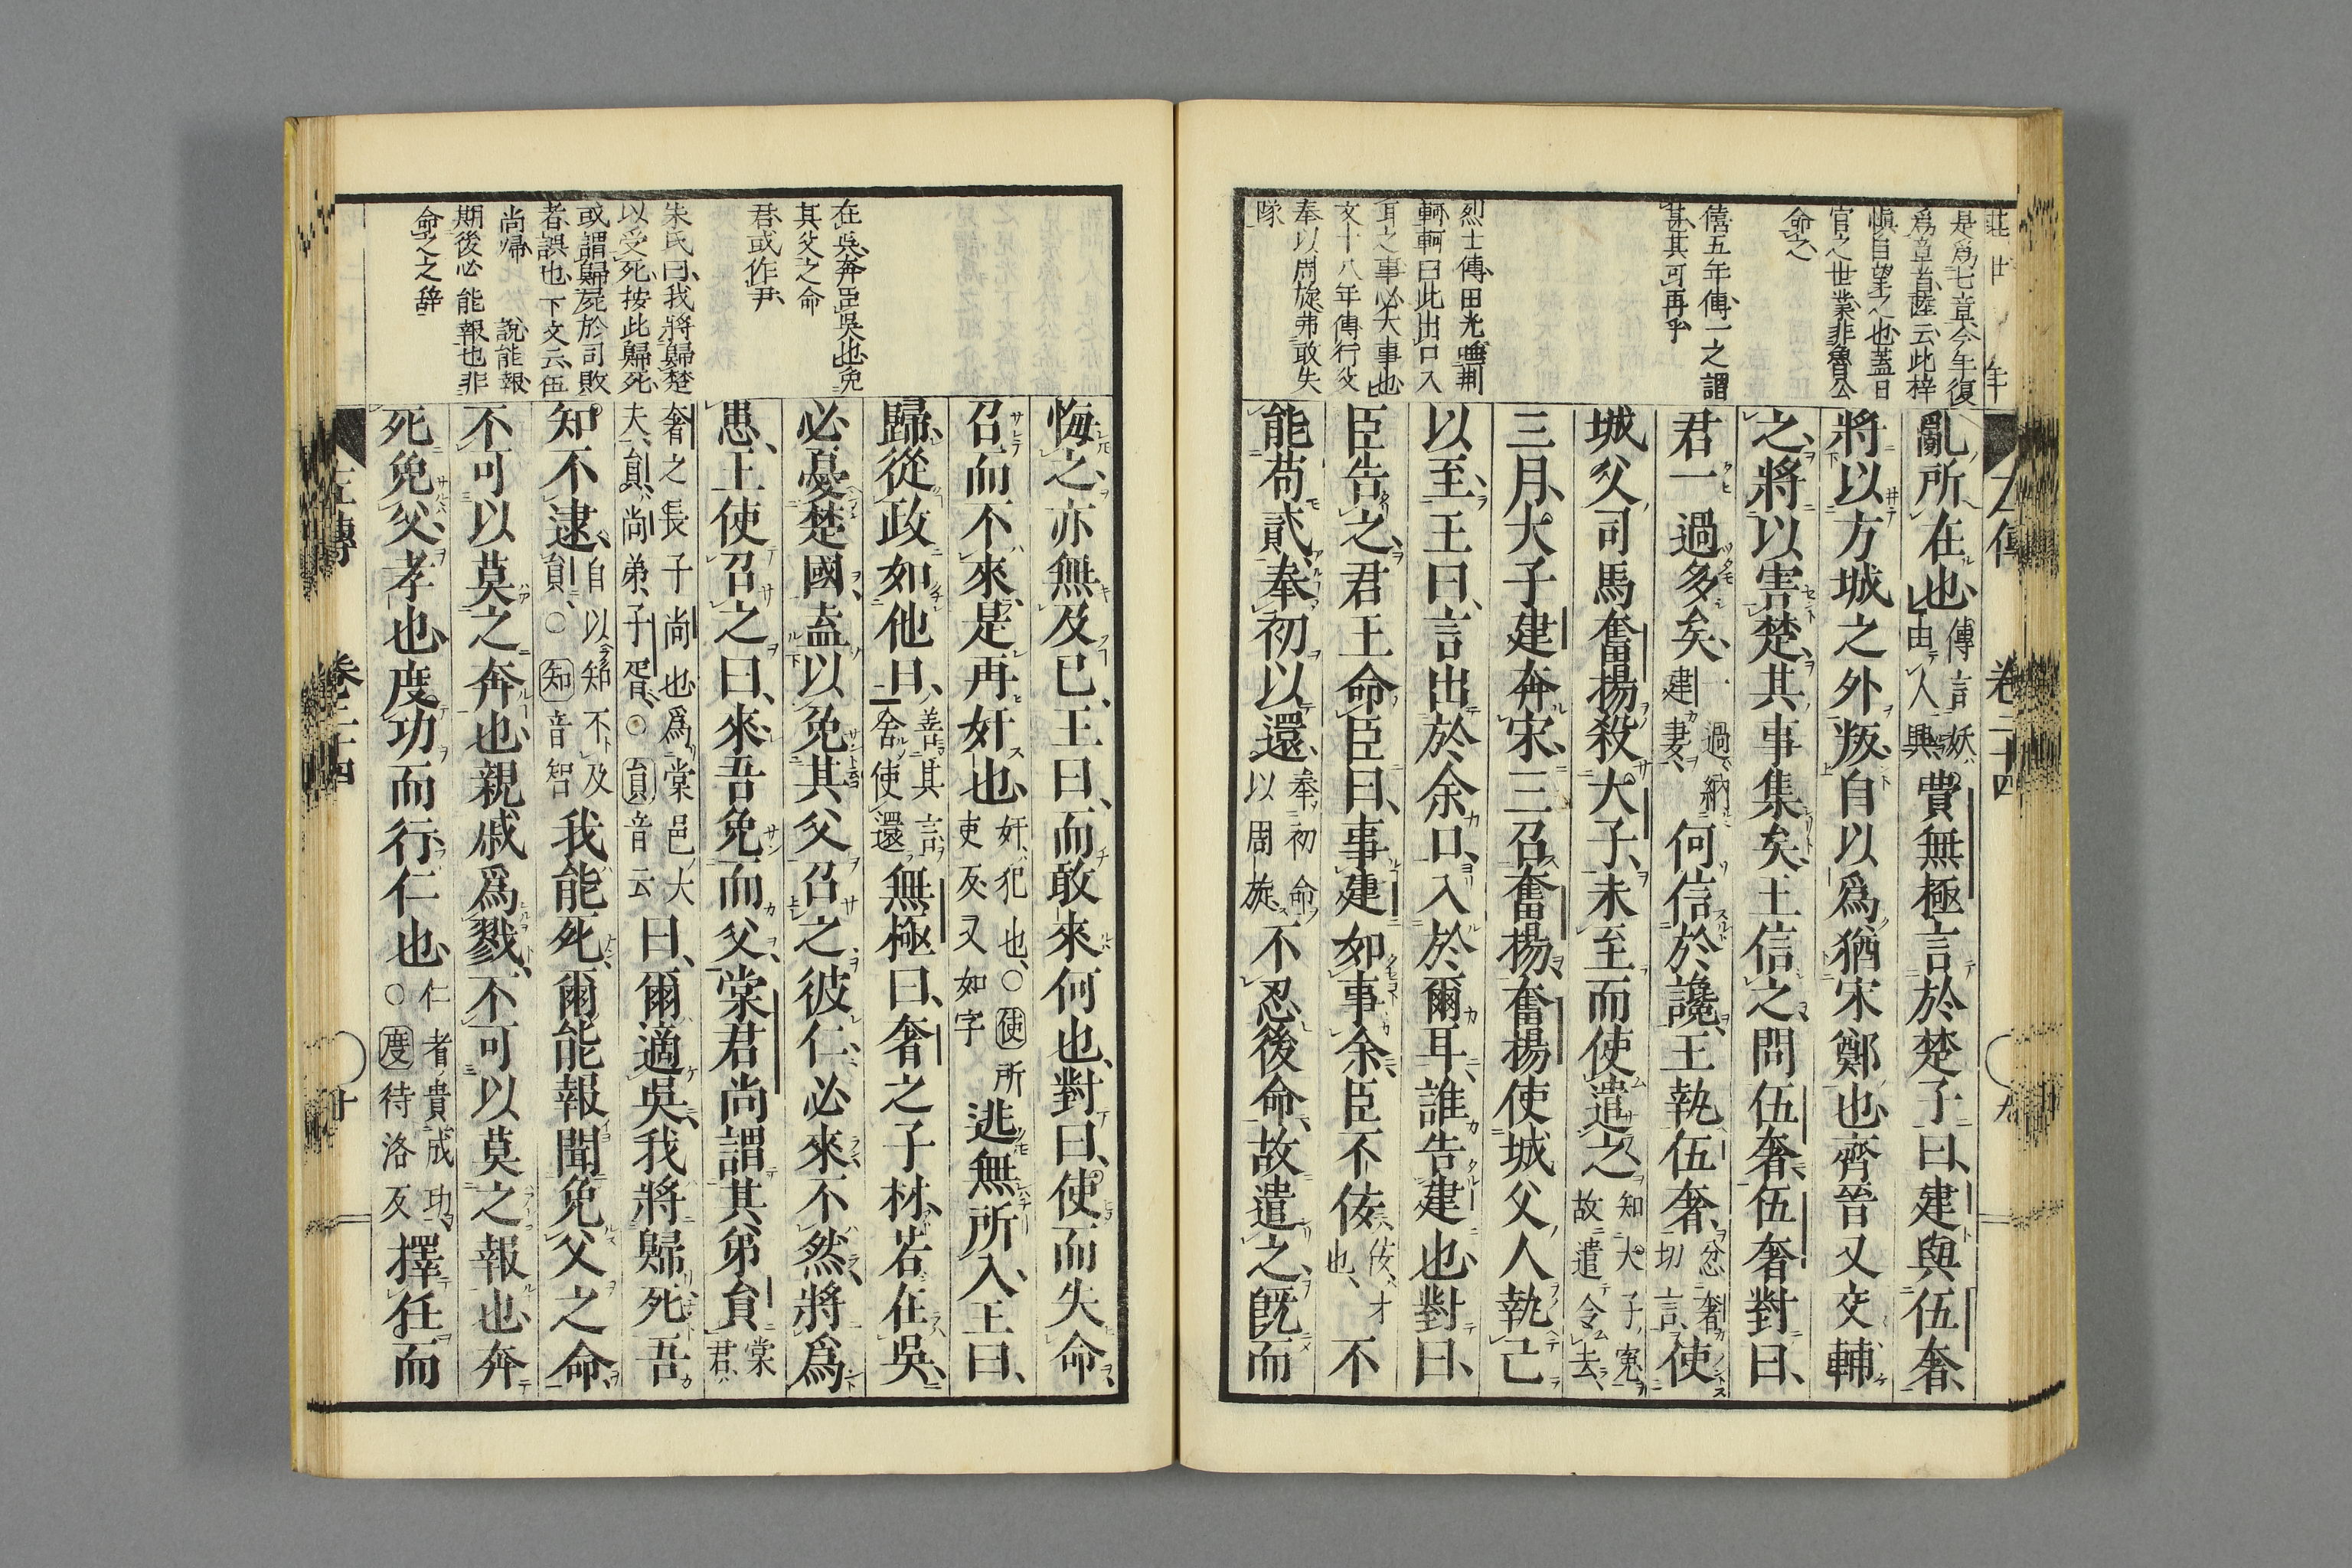 是爲七章今年復
爲章首陸云此梓
愼自望之也蓋日
官之世業非魯公
命之
僖五年傳一之謂
甚其可再乎
烈士傳田光唾荆
軻軻曰此出口入
耳之事必大事也
文十八年傳行父
奉以周旋弗敢失
隊
亂所在也傳言妖由人興費無極言於楚子曰建與伍奢
將以方城之外叛自以爲猶宋鄭也齊晉又交輔
之將以害楚其事集矣王信之問伍奢伍奢對曰
君一過多矣一過納建妻何信於讒王執伍奢忿奢切言使
城父司馬奮揚殺大子未至而使遣之知大子寃故遣令去
三月大子建奔宋王召奮揚奮揚使城父人執己
以至王曰言出於余口入於爾耳誰告建也對曰
臣告之君王命臣曰事建如事余臣不佞佞才也不
能苟貳奉初以還奉初命以周旋不忍後命故遣之旣而
左傳 卷二十四 九
在吳奔臣吳也免
其父之命
君或作尹
朱氏曰我將歸楚
以受死按此歸死
或謂歸屍於司敗
者誤也下文云伍
尚歸 說能報
期後必能報也非
命之之辞
悔之亦無及已王曰而敢來何也對曰使而失命
召而不來是再奸也奸犯也○使所吏反又如字逃無所入王曰
歸從政如他日善其言舍使還無極曰奢之子材若在吳
必憂楚國盍以免其父召之彼仁必來不然將爲
患王使召之曰來吾免而父棠君尚謂其弟員棠君
奢之長子尚也爲棠邑大夫員尚弟子胥○員音云曰爾適吳我將歸死吾
知不逮自以知不及員○知音智我能死爾能報聞免父之命
不可以莫之奔也親戚爲戮不可以莫之報也奔
死免父孝也度功而行仁也仁者貴成功○度待洛反擇任而
左傳 卷二十四 十